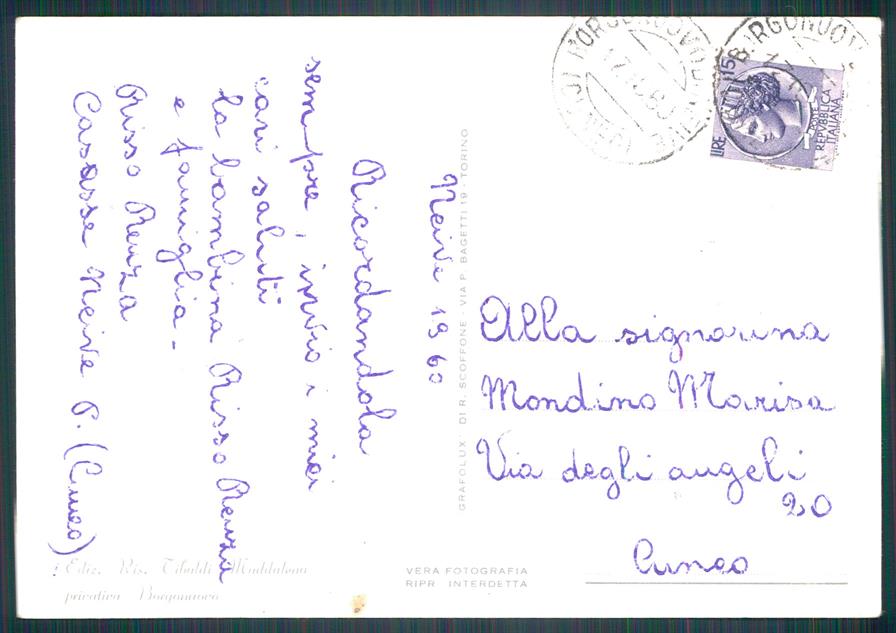 Neive 1960
Ricordandola
sempre, invio i miei
cari saluti
la bambina Risso Renza
e famiglia-
Risso Renza
Casasse Neive P. (Cuneo)
Alla signorina
Mondino Marisa
Via degli angeli
20
Cuneo
BORGONUOVO
BORGONUOVO
LIRE 15
POSTE
REPVBBLICA
ITALIANA
GRAFOLUX DI R. SCOFFONE - VIA P. BAGETTI 19 - TORINO
VERA FOTOGRAFIA
RIPR INTERDETTA
Ediz. Ris. Tibaldi Maddalena
privativa Borgonuovo